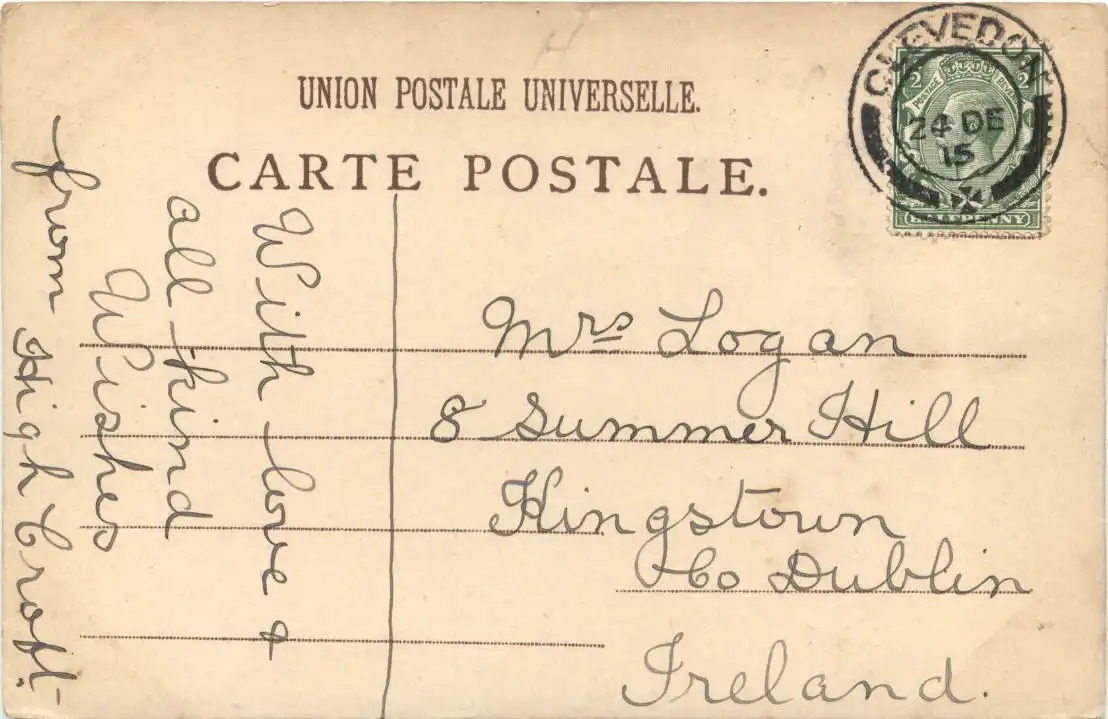 UNION POSTALE UNIVERSELLE.
CARTE POSTALE.
CLEVEDON
24 DE
15
POSTAGE
HALFPENNY
With love &
all kind
Wishes
from High Croft.
Mrs Logan
8 Summer Hill
Kingstown
Co Dublin
Ireland.